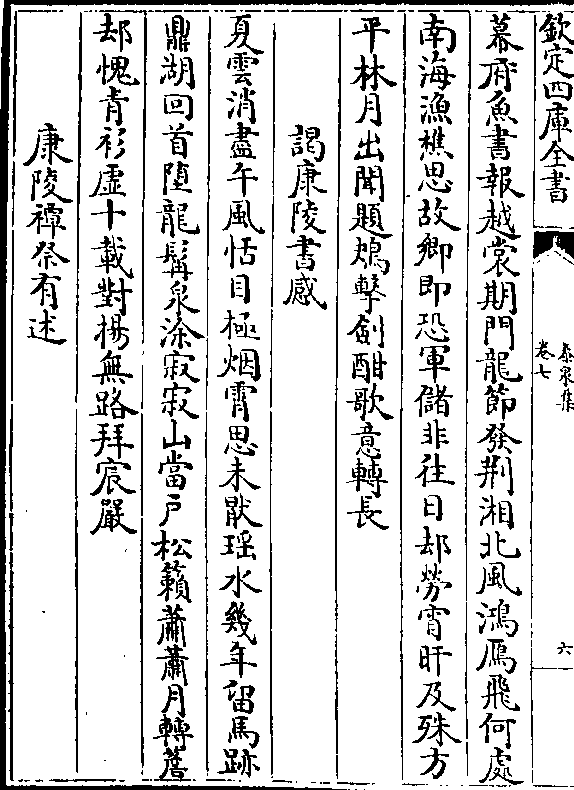 欽定四庫全書
泰泉集
卷七
六
幕府魚書報越裳期門龍節發荆湘北風鴻鴈飛何處
南海漁樵思故鄉即恐軍儲非往日却勞宵旰及殊方
平林月出聞題鴂擊劍酣歌意轉長
謁康陵書感
夏雲消盡午風恬目極烟霄思未猒瑶水幾年留馬跡
鼎湖回首墮龍髯泉涂寂寂山當戸松籟蕭蕭月轉簷
却愧青衫虚十載對楊無路拜宸嚴
康陵禫祭有述